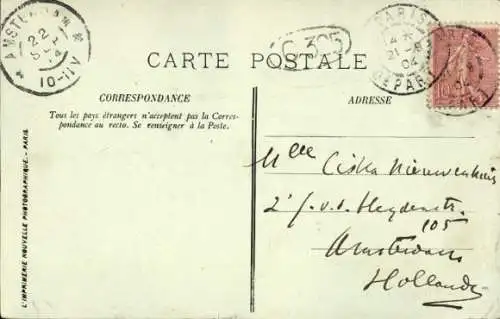 AMSTERDAM
22
10-11V
C 305
PARIS
21
04
DEPART
CARTE POSTALE
CORRESPONDANCE
Tous les pays étrangers n'acceptent pas la Corres-
pondance au recto. Se renseigner à la Poste.
ADRESSE
Mlle Ciska Nieuwenhuis
2e J.v.d. Heydenstr.
105
Amsterdam
Hollande
L'IMPRIMERIE NOUVELLE PHOTOGRAPHIQUE. - PARIS